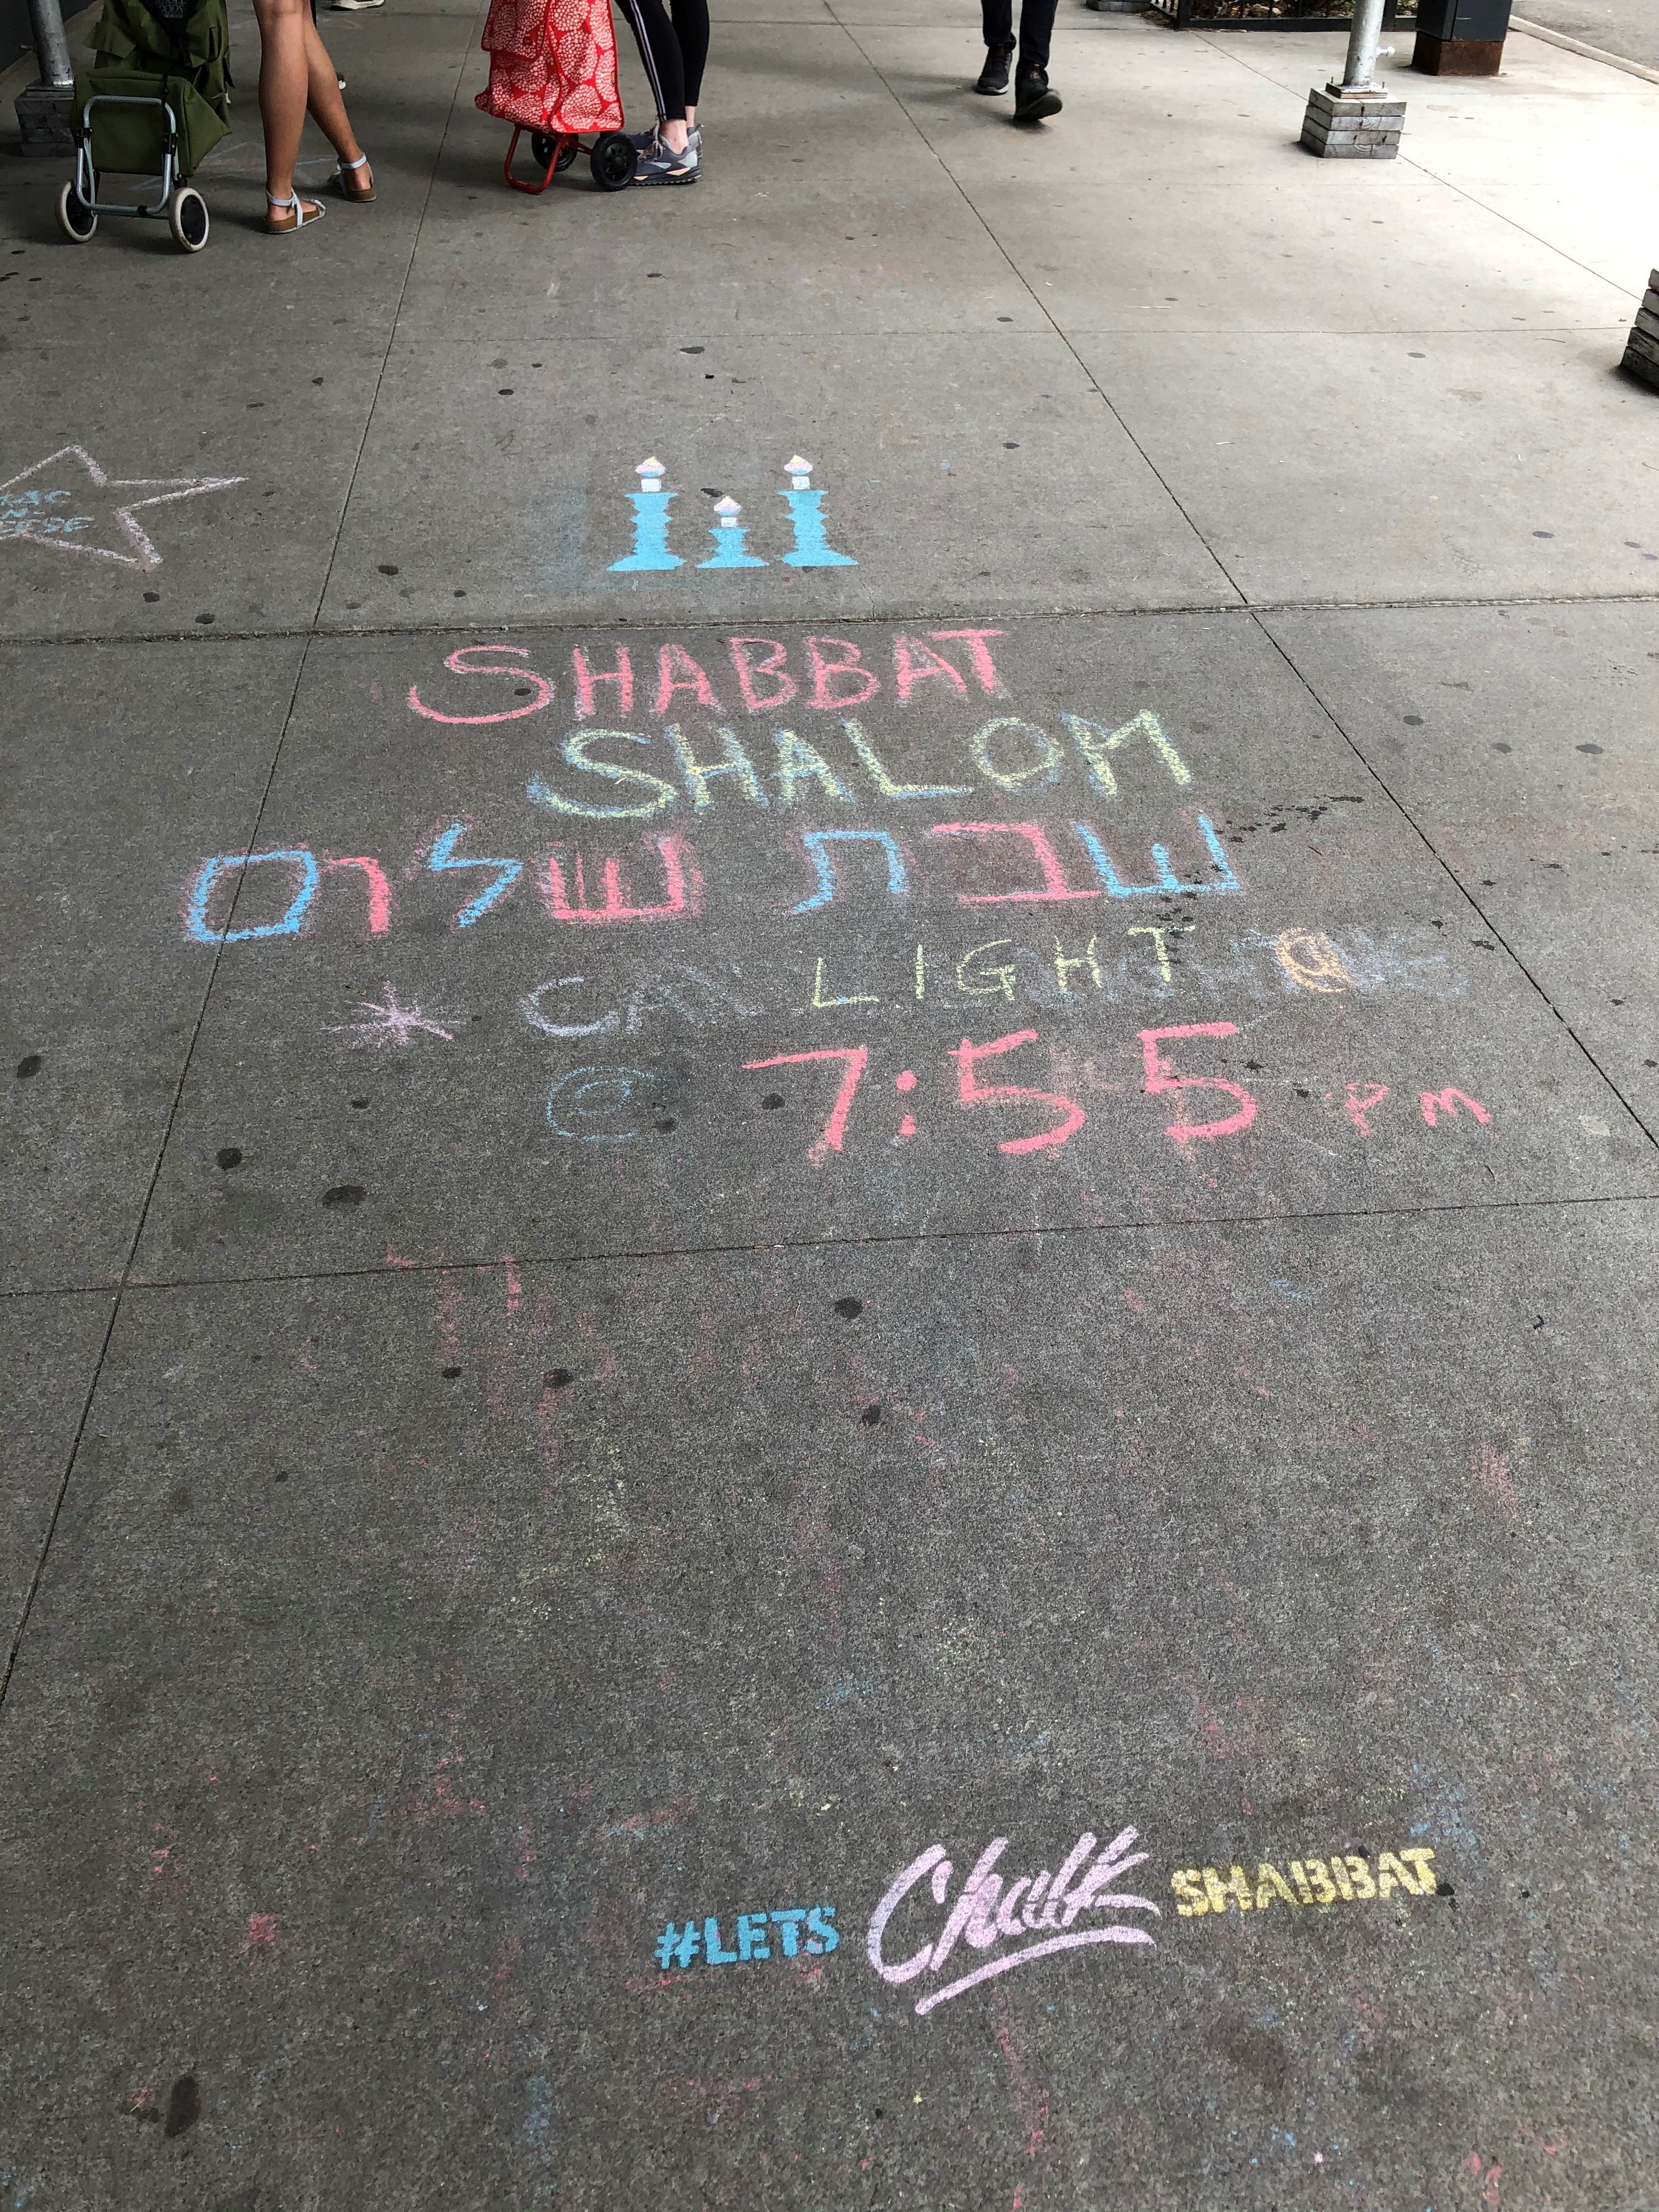 SHABBAT
SHALOM
שבת שלום
* CAN LIGHT @
@ 7:55 PM
#LETS Chalk SHABBAT